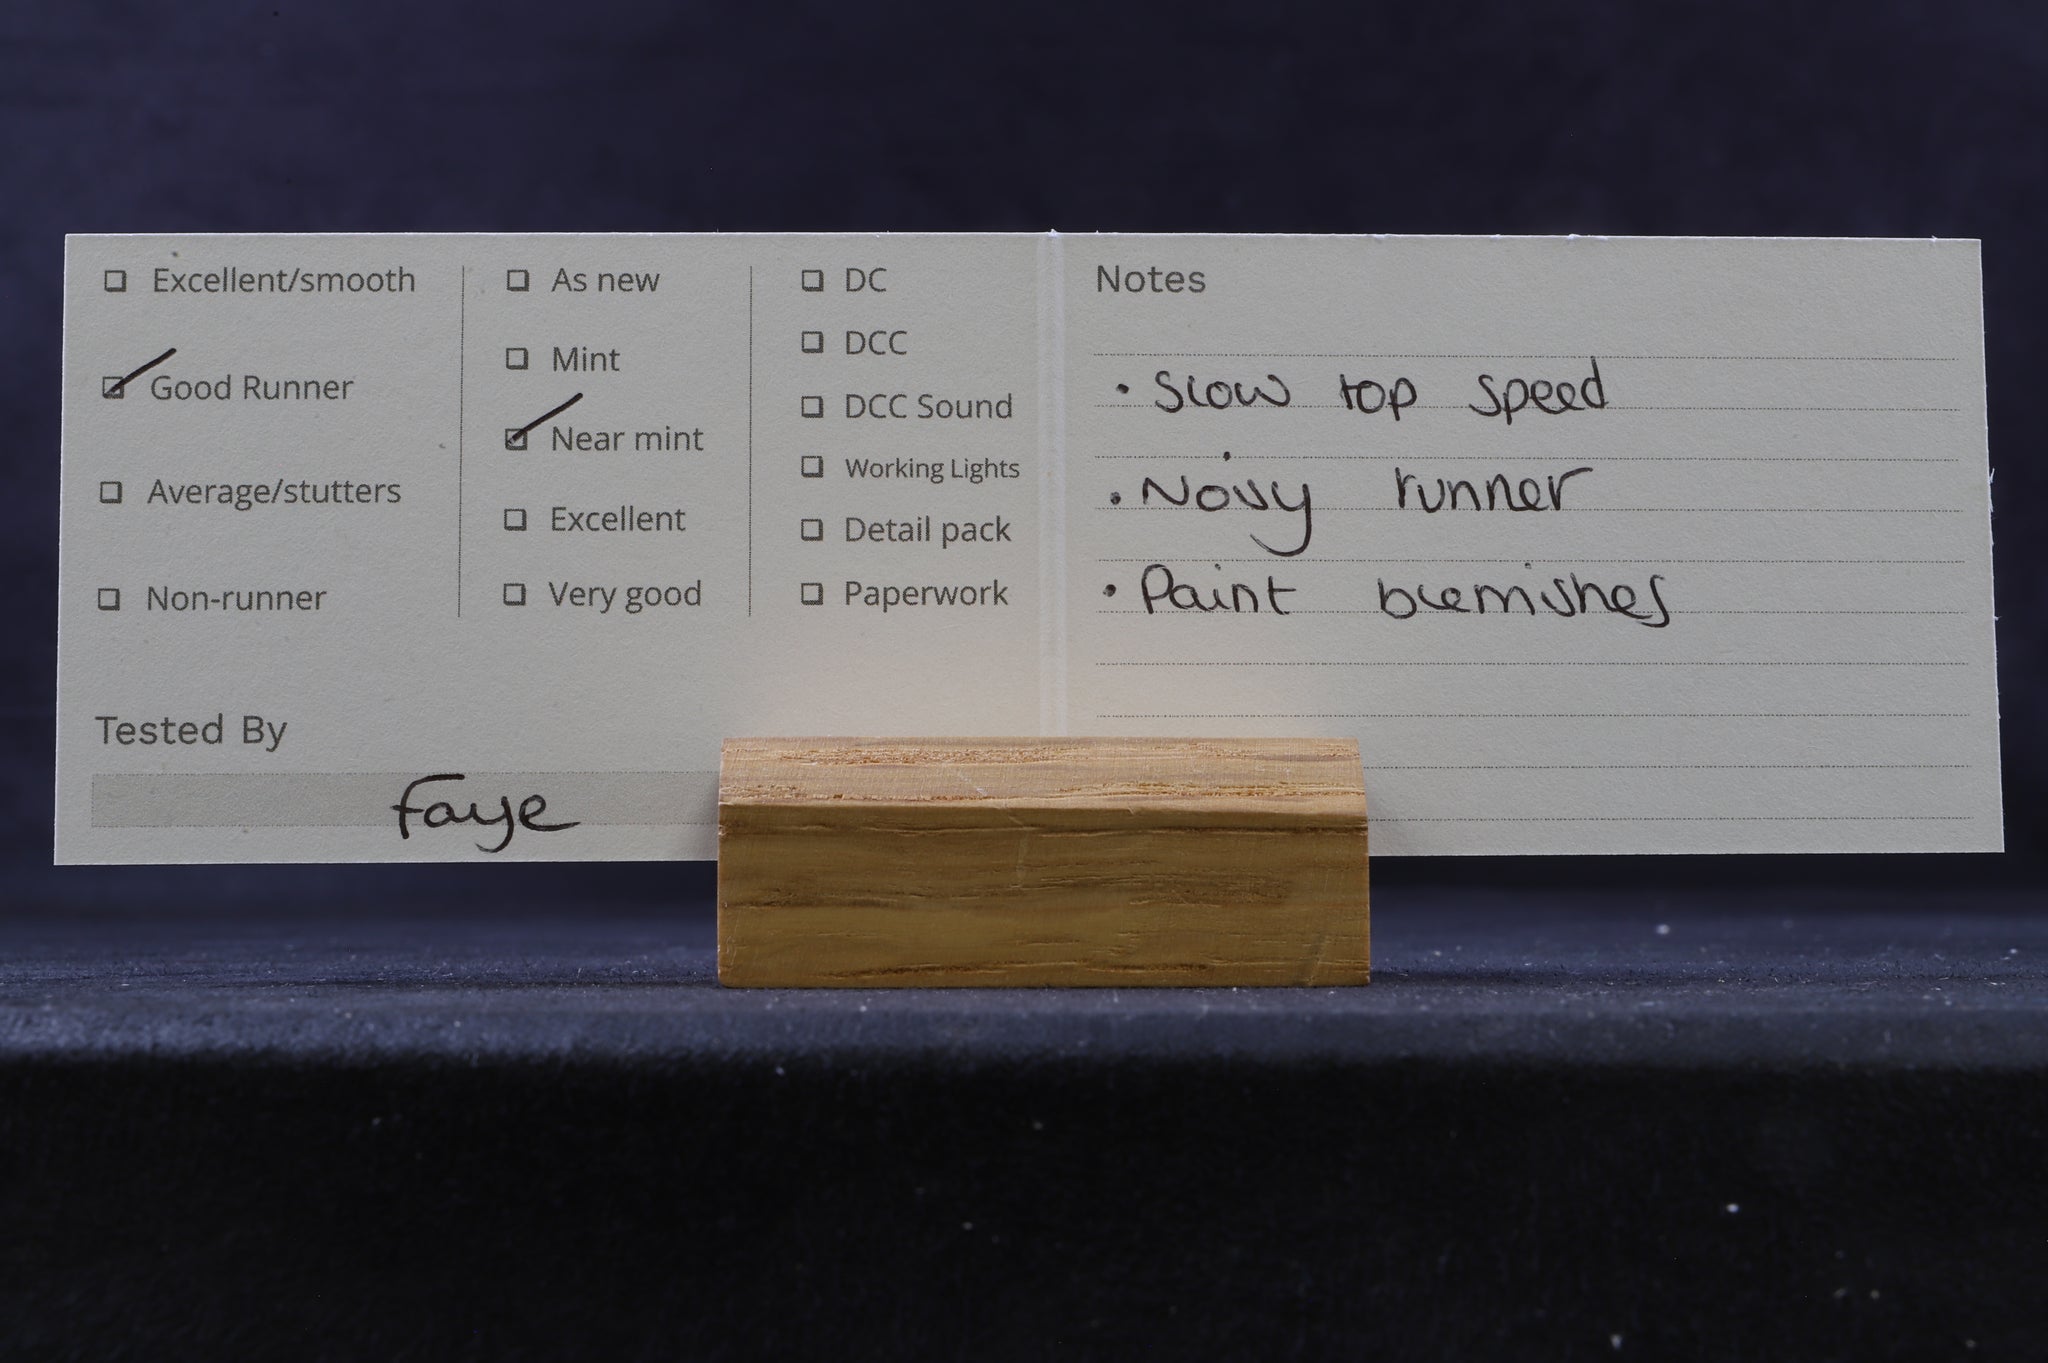 Excellent/smooth
Good Runner
Average/stutters
Non-runner
As new
Mint
Near mint
Excellent
Very good
DC
DCC
DCC Sound
Working Lights
Detail pack
Paperwork
Tested By
Faye
Notes
• Slow top speed
• Noisy runner
• Paint blemishes